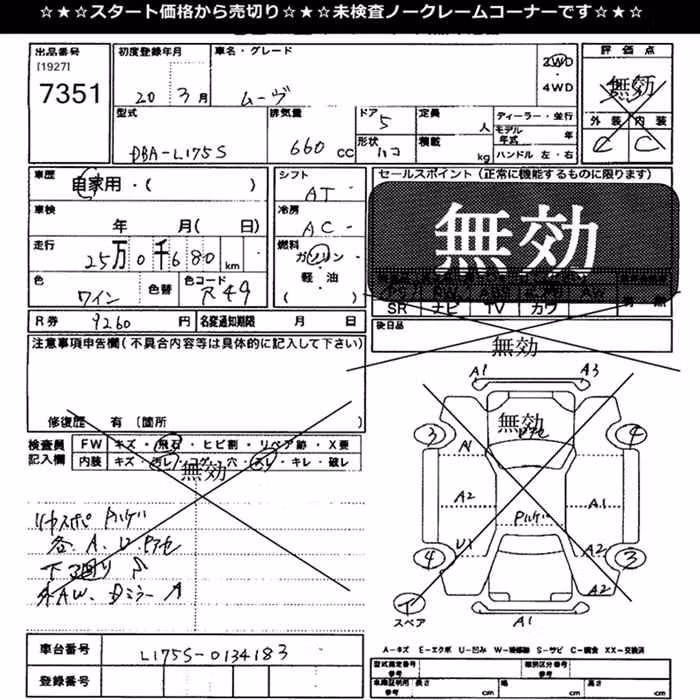 ☆★☆★スタート価格から売切り☆★☆★未検査ノークレームコーナーです☆★☆
出品番号
[1927]
7351
初度登録年月
20 3月
車名・グレード
ムーヴ
2WD
・
4WD
評価点
無効
外装 内装
C C
型式
DBA-L175S
排気量
660 cc
ドア
5
形状
ハコ
定員
人
積載
kg
ディーラー・並行
モデル年式 年
ハンドル 左・右
車歴
自家用・( )
車検
年 月( 日)
走行
25万0千680 km
色
ワイン
色替
色コード
R49
シフト
AT
冷房
AC
燃料
ガソリン
・
軽油
( )
セールスポイント(正常に機能するものに限ります)
無効
SR ナビ TV カワ
後日品
無効
R券 9260 円
名変通知期限 月 日
注意事項申告欄(不具合内容等は具体的に記入して下さい)
修復歴 有〔箇所 〕
検査員
記入欄
FW キズ・飛石・ヒビ割・リペア跡・X要
内装 キズ・汚レ・コゲ・穴・スレ・キレ・破レ
無効
各、A、U、
下廻りサ
外AW、Dミラー
A1 A3
無効
3 4
A1
A2 A1
U1 A2
4 3
A2
スペア
A1
A-キズ E-エクボ U-凹み W-補修跡 S-サビ C-腐食 XX-交換済
車台番号
L175S-0134183
登録番号
型式指定番号
参考
類別区分番号
参考
車庫証明用
参考
長さ cm
幅 cm
高さ cm